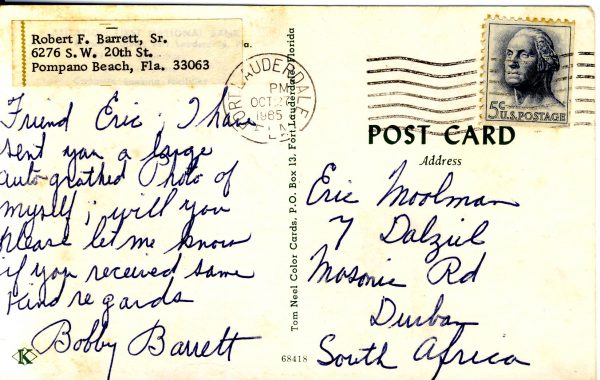 Robert F. Barrett, Sr.
6276 S.W. 20th St.
Pompano Beach, Fla. 33063
a.
FORT LAUDERDALE
PM
OCT
1965
FLA
5c
U.S. POSTAGE
Friend Eric; I have
sent you a large
auto-grathed Photo of
myself; will you
please let me know
if you received same
Kind regards
Bobby Barrett
K
Tom Neel Color Cards, P.O. Box 13, Fort Lauderdale, Florida
68418
POST CARD
Address
Eric Moolman
7 Dalziel
Masonic Rd
Durban
South Africa